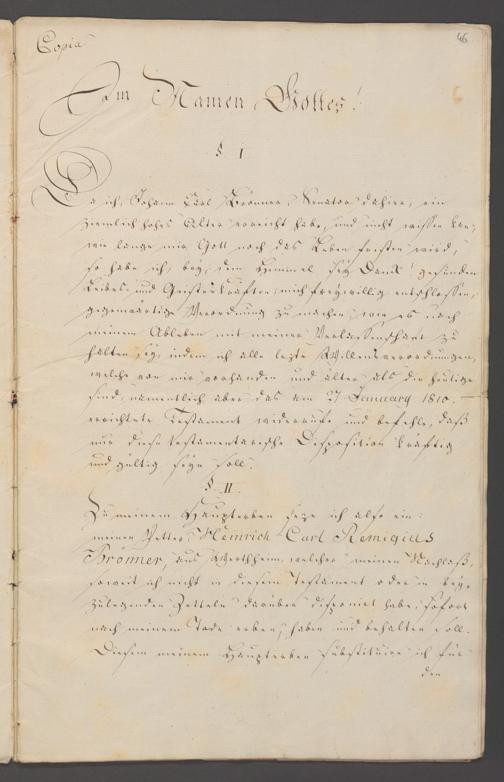 Copia
46
6
Im Namen Gottes!
§ I
Da ich, Johann Carl Brönner, Senator dahier, ein
ziemlich hohes Alter erreicht habe, und nicht wissen kan,
wie lange mir Gott noch das Leben fristen wird,
so habe ich, bey, dem Himmel sey Dank! gesunden
Leibes- und Geisteskräften, mich freywillig entschlossen,
gegenwärtige Verordnung zu machen, wie es nach
meinem Ableben mit meiner Verlassenschaft zu
halten sey, indem ich alle lezte Willensverordnungen,
welche von mir vorhanden und älter als die heutige
sind, namentlich aber das am 27 January 1810.
errichtete Testament widerrufe und befehle, daß
nur diese testamentarische Disposition kräftig
und gültig seyn soll.
§ II.
Zu meinem Haupterben seze ich also ein:
meinen Vetter, Heinrich Carl Remigius
Brönner, aus Wertheim, welcher meinen Nachlaß,
soweit ich nicht in diesem Testament oder in bey-
zulegenden Zetteln darüber disponirt habe, sofort
nach meinem Tode erben, haben und behalten soll.
Diesem meinem Haupterben substituire ich für
den